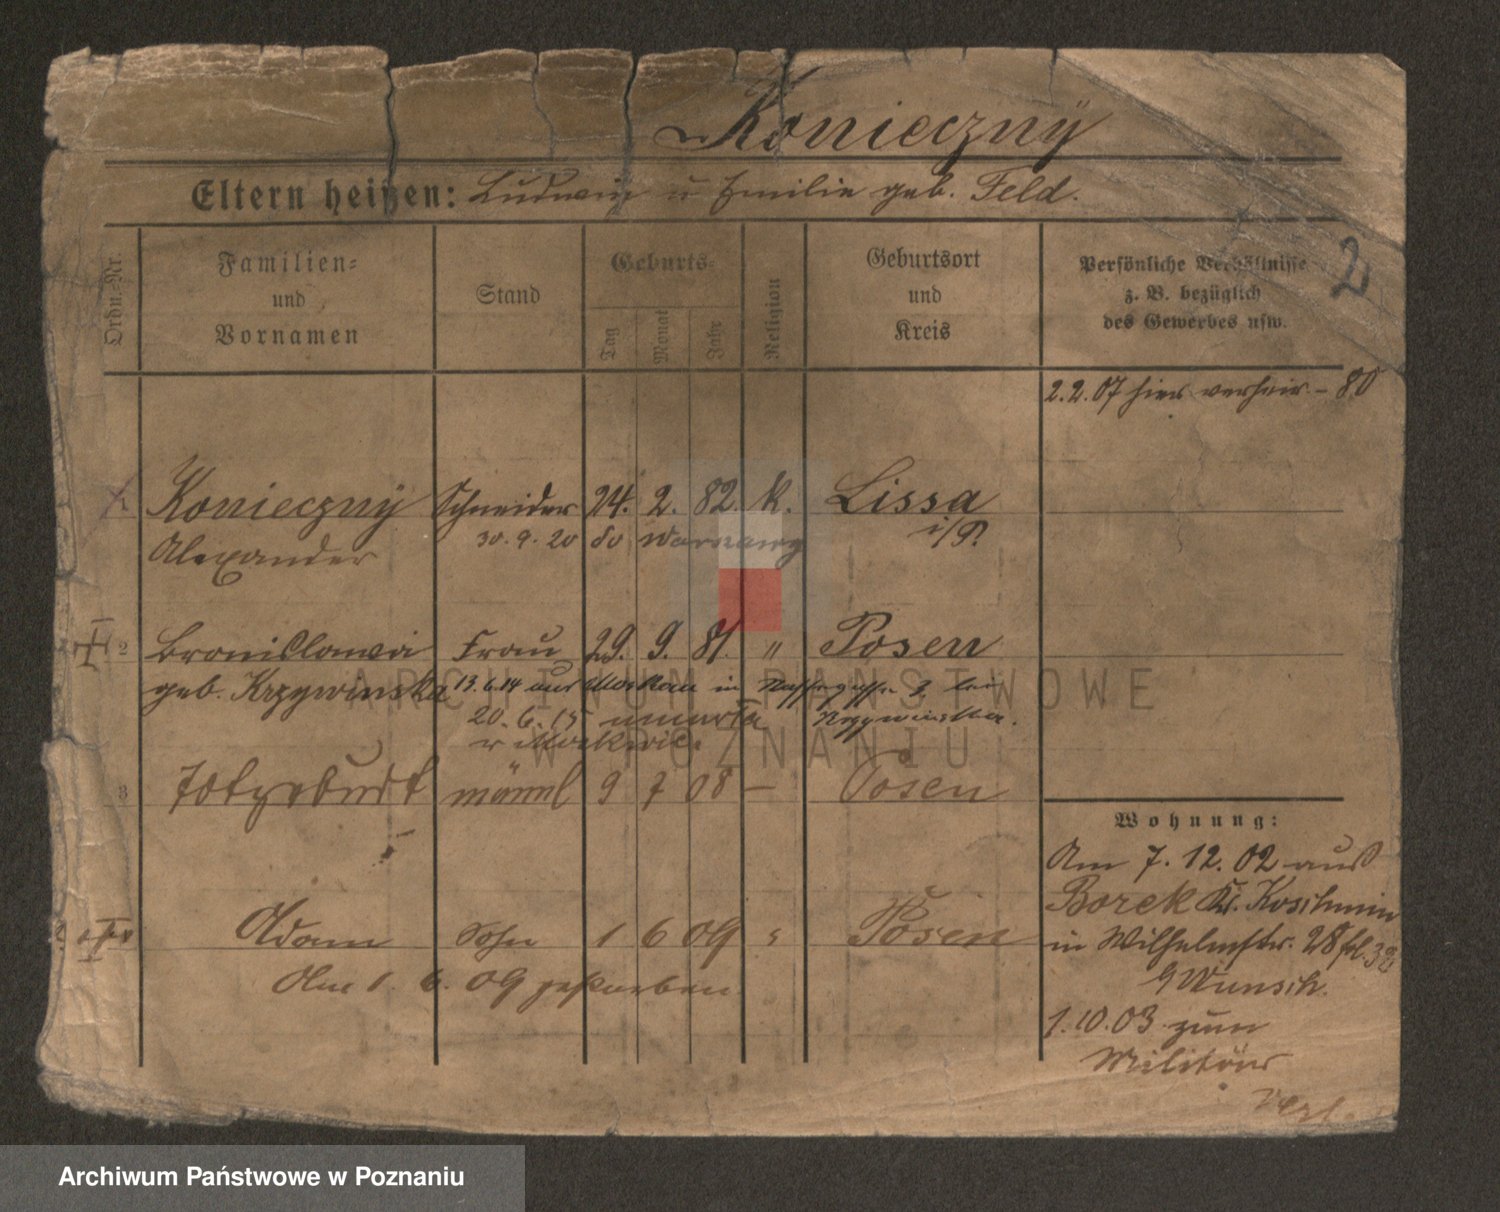 Konieczny
Eltern heißen: Ludwig u Emilie geb. Feld.
2
Ordn.-Nr.
Familien-
und
Vornamen
Stand
Geburts-
Tag
Monat
Jahr
Religion
Geburtsort
und
Kreis
Persönliche Verhältnisse
z. B. bezüglich
des Gewerbes usw.
2.2.07 hier verheir. - 80
Konieczny Schneider 24. 2. 82. k. Lissa
Alexander 30.9.20 do Warszawy i/P.
2 Bronislawa Frau 29. 9. 81. " Posen
geb. Krzywinska 13.6.14 aus Moskau in 3, bei
20.6.15 umarła Krzywinska.
w Moskwie.
3 Totgeburt männl 9 7 08 — Posen
Adam Sohn 1 6 09 Posen
Am 1. 6. 09 gestorben
Wohnung:
Am 7. 12. 02 aus
Borek Kr. Koschmin
in Wilhelmstr. 28
Wunsch.
1.10.03 zum
Militär
ARCHIWUM PAŃSTWOWE
W POZNANIU
Archiwum Państwowe w Poznaniu